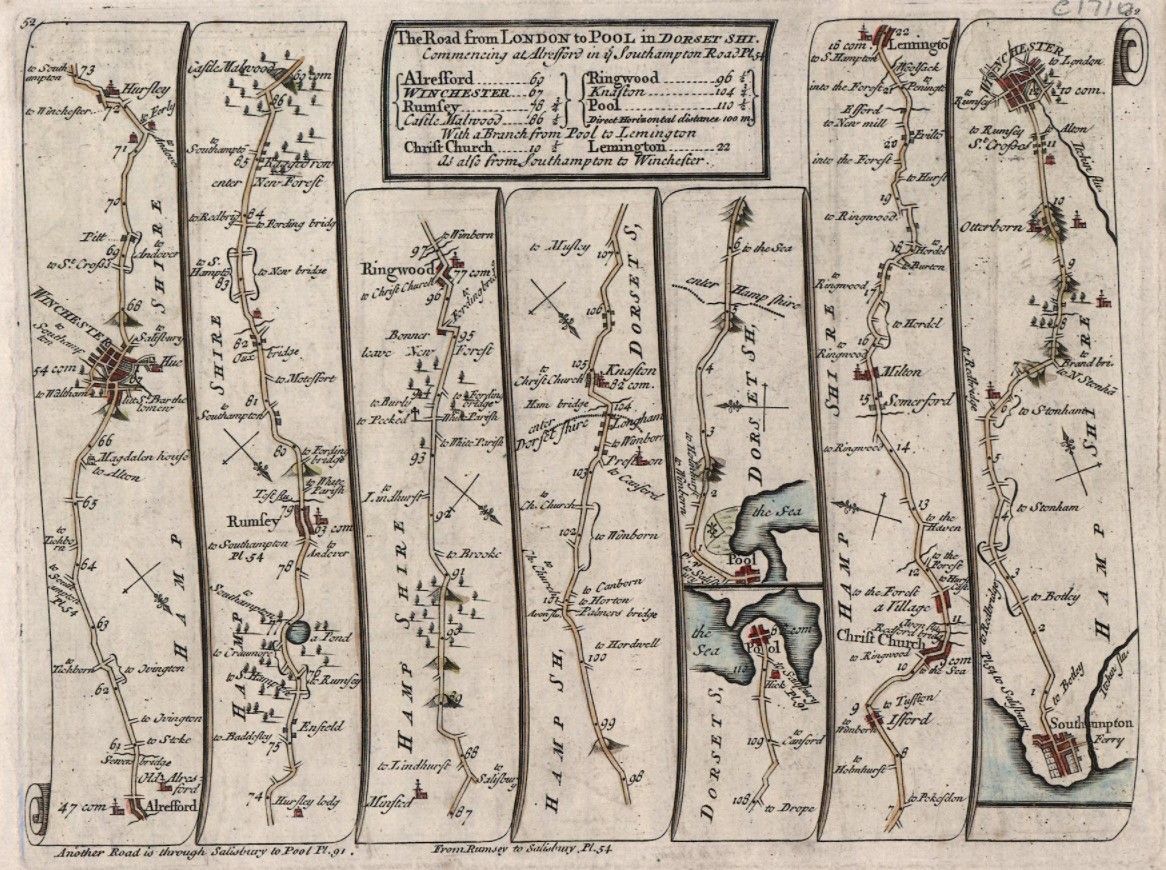 52
The Road from LONDON to POOL in DORSET SHI.
Commencing at Alresford in yͤ Southampton Road Pl.54
Alresford 60
WINCHESTER 67
Rumsey 78
Castle Malwood 86
Ringwood 96
Knaston 104
Pool 110
Direct Horizontal distance 100 m
With a Branch from Pool to Lemington
Christ Church 19
Lemington 22
As also from Southampton to Winchester.
73
to South ampton
Hursley
to Winchester
72
71
70
Pitt
69
to Andover
to St. Cross
68
SHIRE
to Salisbury
WINCHESTER
to Southamp ton
54 com
to Waltham
66
Magdalen house
to Alton
65
64
to South ampton Pl.54
63
HAMP
to Ovington
62
to Ovington
61
to Stoke
bridge
Old Alres ford
47 com
Alresford
Castle Malwood
69 com
86
to Southampto
85
enter New Forest
to Redbrig
84
to Fording bridg
to S. Hampto
83
to New bridge
SHIRE
82
bridge
to Motesfort
81
to Southampton
80
to Fording bridge
to White Parish
79
Rumsey
63 com
to Southampton Pl.54
to Andover
78
to Southampton
77
a Pond
to Cranmore
to S. Hamp
76
to Rumsey
HAMP
Enfield
to Baddesley
75
74
Hursley lodg
to Wimborn
97
Ringwood
77 com
to Christ Church
96
to Fordingbrid
Bonner
95
leave New Forest
94
to Burly
to Fording bridge
to Peeked
White Parish
to White Parish
93
to Lindhurst
92
to Brooke
91
90
89
HAMP SHIRE
88
to Lindhurst
to Salisbury
Minsted
87
to Musley
107
DORSET S,
106
105
to Christ Church
Knaston
92 com.
Ham bridge
104
enter Dorset shire
Longham
to Wimborn
103
to Canford
to Ch. Church
102
to Wimborn
to Ch. Church
to Canborn
101
to Horton
Palmers bridge
to Hordwell
100
99
HAMP SH,
98
6
to the Sea
enter Hamp shire
5
4
DORSET SH,
3
2
to Wimborn
the Sea
Pool
the Sea
Pool
110
Hick
to Salisbury Pl.91
109
to Canford
DORSET S,
108
to Drope
22
16 com
Lemingto
to S. Hampton
Woolsack
into the Forest
21
to Peningto
Efford
to New mill
20
into the Forest
to Hurst
19
to Ringwood
18
to Hordel
Burton
to Ringwood
17
to Hordel
16
to Ringwood
SHIRE
Milton
15
Somerford
to Ringwood
14
13
to the Haven
to the Forest
12
to Hurst Cast.
to the Forest
a Village
11
HAMP
Christ Church
to Ringwood
10
to the Sea
9
to Tuffton
to Wimborn
Ifford
8
to Holmhurst
7
to Pokesdon
WINCHESTER
to London
to Rumsey
10 com.
to Rumsey
Alton
St. Crosses
11
Itchin flu.
Otterborn
10
9
8
SHI RE
Brand bri.
7
to N. Stonha
to Redbridge
6
to Stonham
5
to Stonham
4
3
to Botley
to Redbridg
2
HAMP
Pl.54 to Salisbury
1
to Botley
Itchin flu.
Southampton
Ferry
Another Road is through Salisbury to Pool Pl.91.
From Rumsey to Salisbury Pl.54